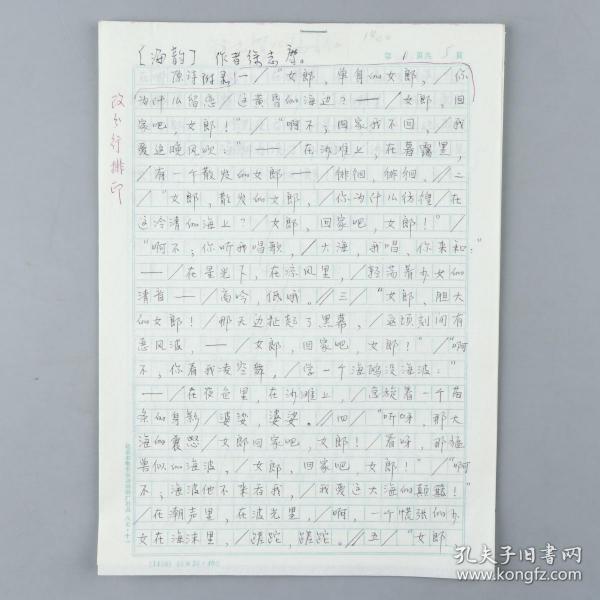 ［海韵］ 作者徐志摩。
第1页共5页
原诗附录！一／“女郎，单身的女郎，／你
为什么留恋／这黄昏的海边？——／女郎，回
家吧，女郎！”／“啊不；回家我不回，／我
爱这晚风吹：”——／在沙滩上，在暮霭里，
／有一个散发的女郎——／徘徊，徘徊。∥二
／“女郎，散发的女郎，／你为什么彷徨／在
这冷清的海上？／女郎，回家吧，女郎！”／
“啊不；你听我唱歌，／大海，我唱，你来和：”
——／在星光下，在凉风里，／轻荡着少女的
清音——／高吟，低哦。∥三／“女郎，胆大
的女郎！／那天边扯起了黑幕，／这顷刻间有
恶风波，——／女郎，回家吧，女郎！”／“啊
不；你看我凌空舞，／学一个海鸥没海波：”
——／在夜色里，在沙滩上，／急旋着一个苗
条的身影／婆娑，婆娑。∥四／“听呀，那大
海的震怒／女郎回家吧，女郎！／看呀，那猛
兽似的海波，／女郎，回家吧，女郎！”／“啊
不；海波他不来吞我，／我爱这大海的颠簸！”
／在潮声里，在波光里，／啊，一个慌张的少
女在海沫里，／蹉跎，蹉跎。∥五／“女郎
改分行排印
孔夫子旧书网
www.kongfz.com